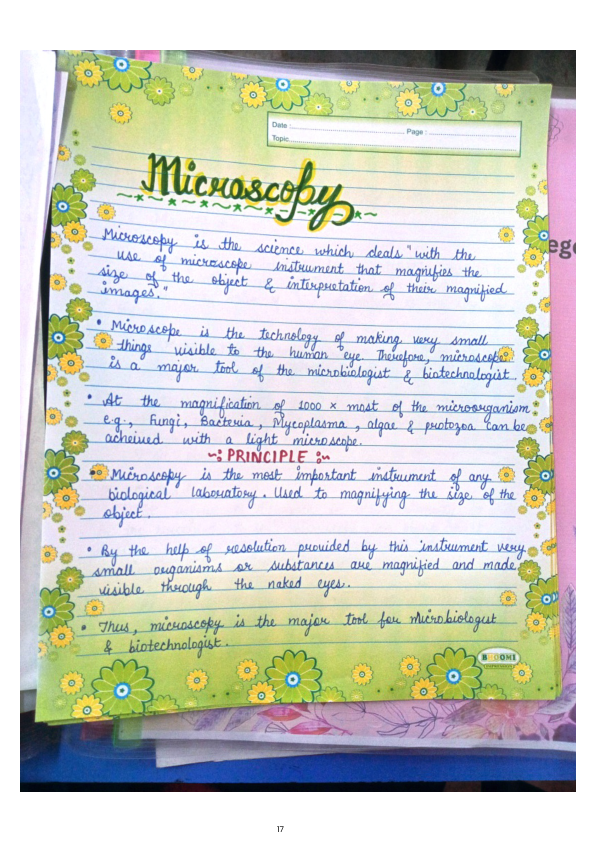 Date : Page :
Topic
Microscopy
Microscopy is the science which deals "with the
use of microscope instrument that magnifies the
size of the object & interpretation of their magnified
images."
• Microscope is the technology of making very small
things visible to the human eye. Therefore, microscope
is a major tool of the microbiologist & biotechnologist.
• At the magnification of 1000 × most of the microorganism
e.g., Fungi, Bacteria, Mycoplasma, algae & protozoa can be
acheived with a light microscope.
~: PRINCIPLE :~
• Microscopy is the most important instrument of any
biological laboratory. Used to magnifying the size of the
object.
• By the help of resolution provided by this instrument very
small organisms or substances are magnified and made
visible through the naked eyes.
• Thus, microscopy is the major tool for microbiologist
& biotechnologist.
BHOOMI
ege
17